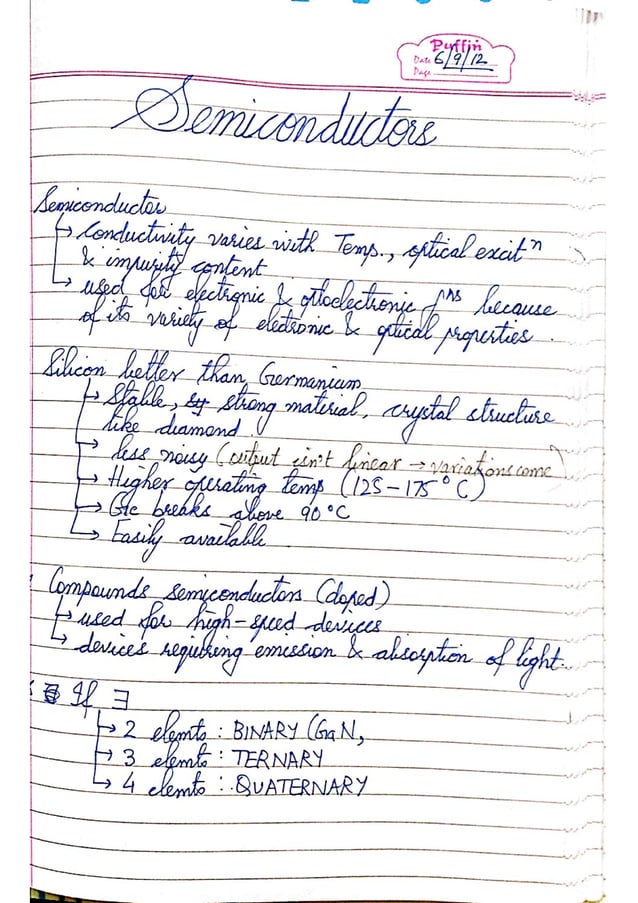 Puffin
Date 6/9/12
Page
Semiconductors
Semiconductor
↳ Conductivity varies with Temp., optical excitⁿ
& impurity content
↳ used for electronic & optoelectronic fⁿˢ because
of its variety of electronic & optical properties.
Silicon better than Germanium
↳ Stable, strong material, crystal structure
like diamond.
↳ less noisy (output isn't linear → variations come)
↳ Higher operating temp (125-175°C)
↳ Ge breaks above 90°C
↳ Easily available.
Compounds semiconductors (doped)
↳ used for high-speed devices
↳ devices requiring emission & absorption of light.
If ∃
↳ 2 elemts : BINARY (GaN,
↳ 3 elemts : TERNARY
↳ 4 elemts : QUATERNARY